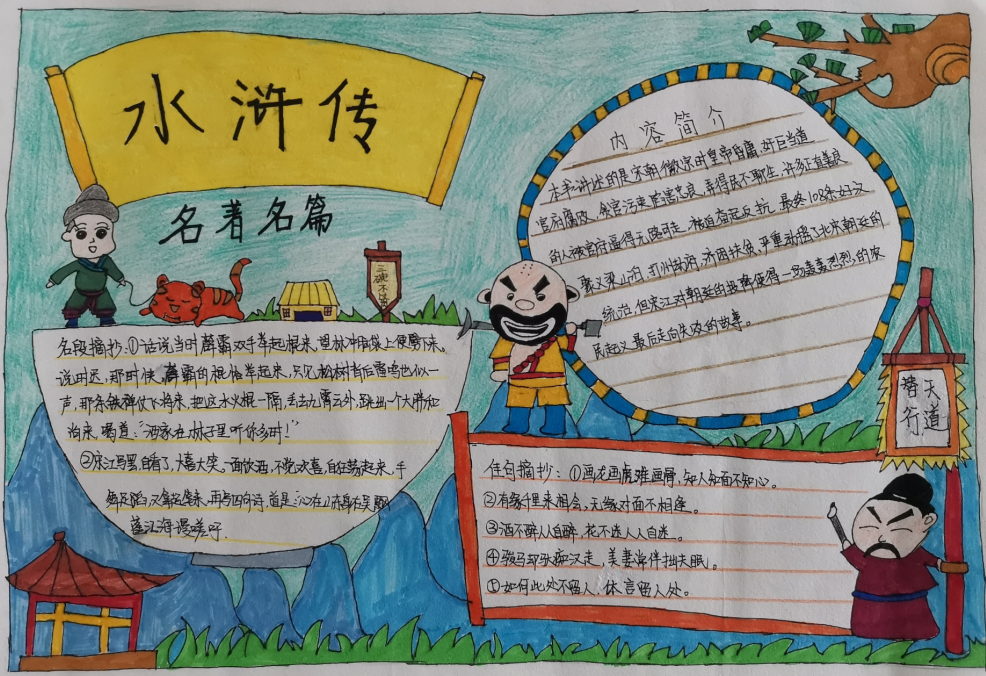 水浒传
名著名篇
三碗不过
名段摘抄:①话说当时薛霸双手举起棍来,望林冲脑袋上便劈下来。
说时迟,那时快,薛霸的棍恰举起来,只见松树背后雷鸣也似一
声,那条铁禅仗飞将来,把这水火棍一隔,丢去九霄云外,跳出一个大胖和
尚来,喝道:“洒家在林子里听你多时!”
②宋江写罢,自看了,大喜大笑。一面饮酒,不觉欢喜,自狂荡起来,手
舞足蹈,又拿起笔来,再写四句诗,道是:心在山东身在吴,飘
蓬江海谩嗟吁.
内容简介
本书讲述的是宋朝徽宗时皇帝昏庸、奸臣当道、
官府腐败、贪官污吏陷害忠良,弄得民不聊生,许多正直善良
的人被官府逼得无路可走,被迫奋起反抗,最终108条好汉
聚义梁山泊,打州劫府,济困扶危,严重动摇了北宋朝廷的
统治,但宋江对朝廷的投降使得一场轰轰烈烈的农
民起义最后走向失败的故事。
替天
行道
佳句摘抄:①画龙画虎难画骨,知人知面不知心。
②有缘千里来相会,无缘对面不相逢。
③酒不醉人人自醉,花不迷人人自迷。
④骏马却驮痴汉走,美妻常伴拙夫眠。
⑤如何此处不留人,休言留人处。